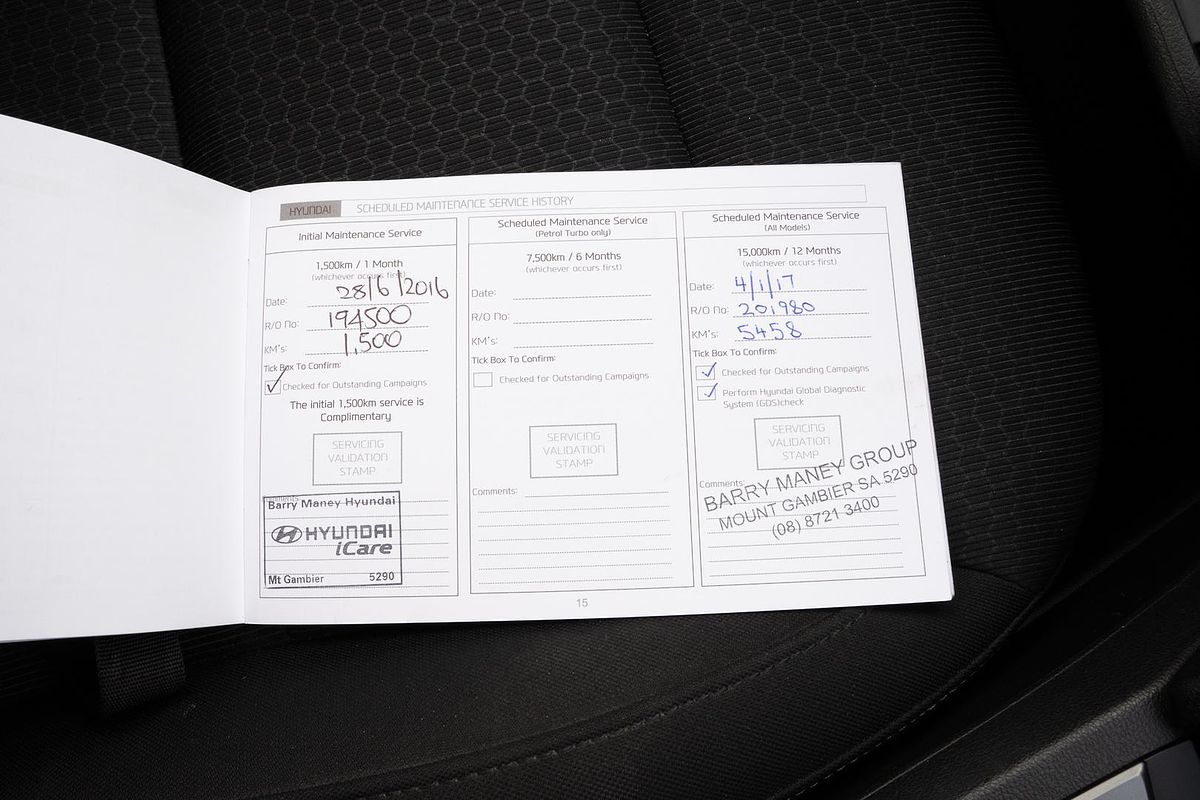 HYUNDAI SCHEDULED MAINTENANCE SERVICE HISTORY
Initial Maintenance Service
1,500km / 1 Month
(whichever occurs first)
Date: 28/6/2016
R/O No: 194500
KM's: 1,500
Tick Box To Confirm:
Checked for Outstanding Campaigns
The initial 1,500km service is
Complimentary
SERVICING
VALIDATION
STAMP
Comments:
Barry Maney Hyundai
HYUNDAI
iCare
Mt Gambier 5290
Scheduled Maintenance Service
(Petrol Turbo only)
7,500km / 6 Months
(whichever occurs first)
Date:
R/O No:
KM's:
Tick Box To Confirm:
Checked for Outstanding Campaigns
SERVICING
VALIDATION
STAMP
Comments:
Scheduled Maintenance Service
(All Models)
15,000km / 12 Months
(whichever occurs first)
Date: 4/1/17
R/O No: 201980
KM's: 5458
Tick Box To Confirm:
Checked for Outstanding Campaigns
Perform Hyundai Global Diagnostic
System (GDS)check
SERVICING
VALIDATION
STAMP
Comments:
BARRY MANEY GROUP
MOUNT GAMBIER SA 5290
(08) 8721 3400
15